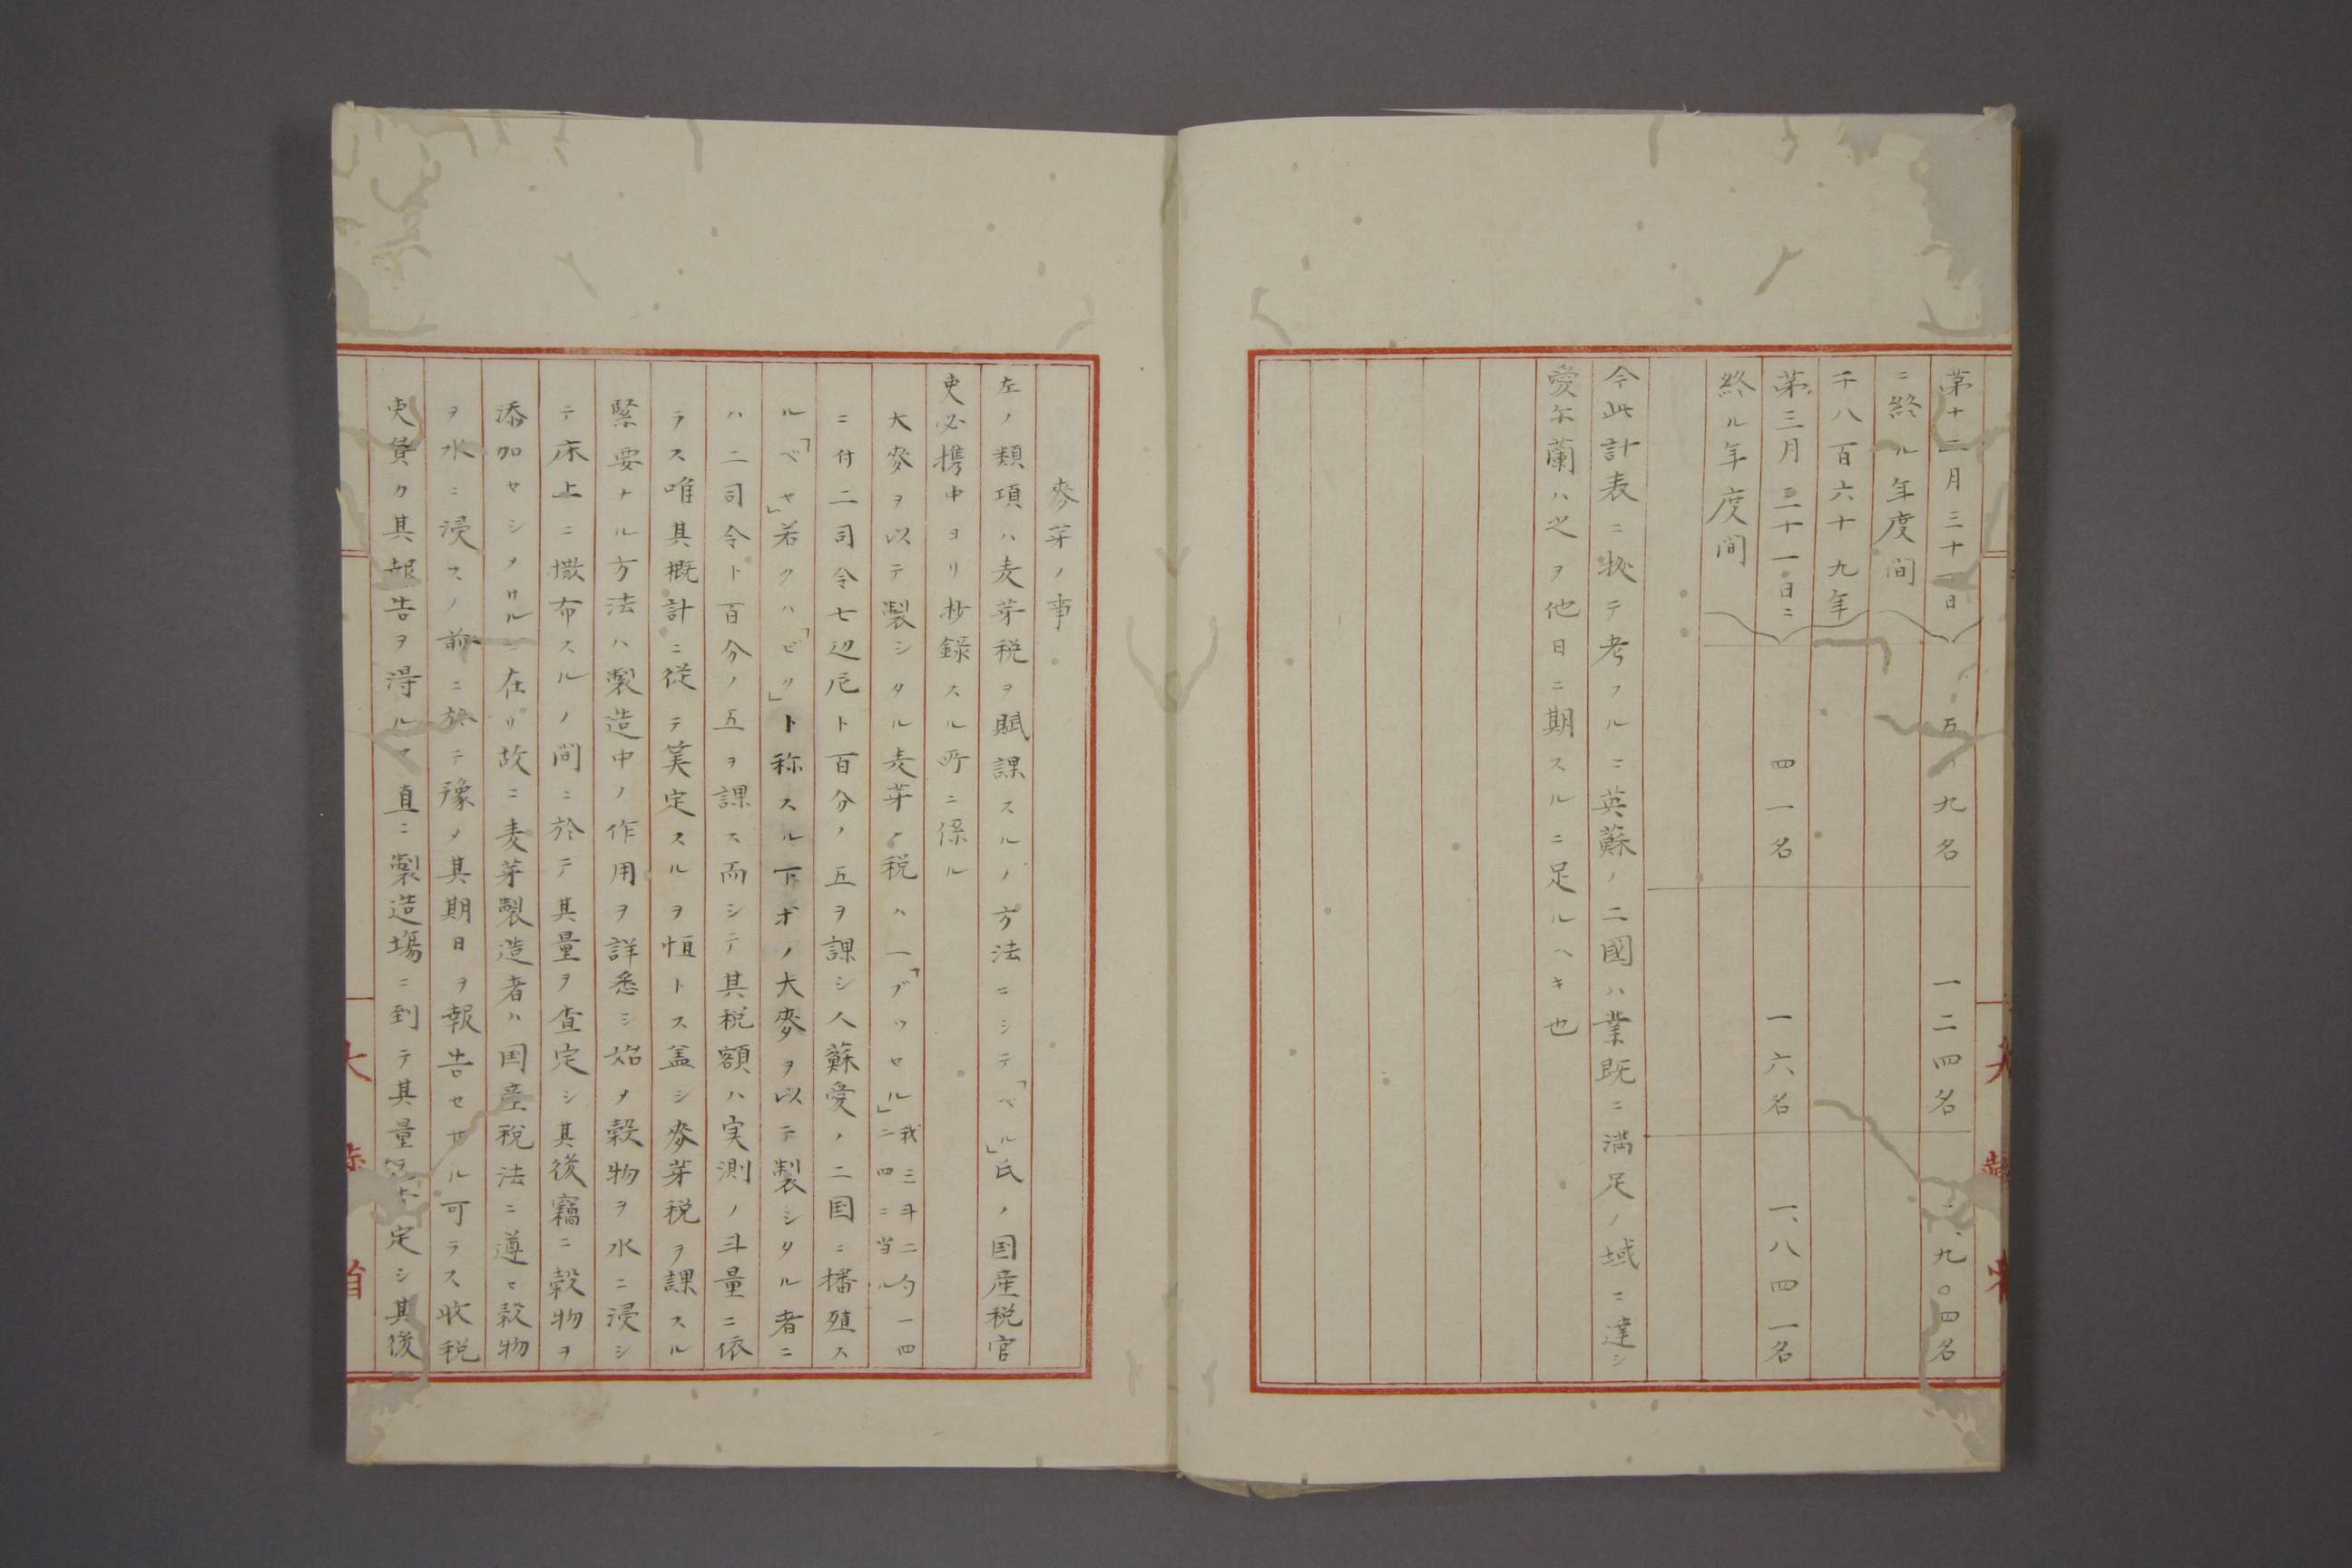 第十二月三十一日
ニ終ル年度間
五、九名
一二四名
九〇四名
千八百六十九年
第三月三十一日ニ
終ル年度間
四一名
一六名
一、八四一名
今此計表ニ拠テ考フルニ英蘇ノ二國ハ業既ニ満足ノ域ニ達シ
愛尓蘭ハ之ヲ他日ニ期スルニ足ルヘキ也
麥芽ノ事
左ノ類項ハ麦芽税ヲ賦課スルノ方法ニシテ「ベル」氏ノ国産税官
吏必携中ヨリ抄録スル所ニ係ル
大麥ヲ以テ製シタル麦芽ノ税ハ一「ブツセル」我三斗二勺一四二四ニ当ル
ニ付二司令七辺尼ト百分ノ五ヲ課シ人蘇愛ノ二国ニ播殖ス
ル「ベヤ」若クハ「ビク」ト称スル下才ノ大麥ヲ以テ製シタル者ニ
ハ二司令ト百分ノ五ヲ課ス而シテ其税額ハ実測ノ斗量ニ依
ラス唯其概計ニ従テ筭定スルヲ恒トス盖シ麥芽税ヲ課スル
緊要ナル方法ハ製造中ノ作用ヲ詳悉シ始メ穀物ヲ水ニ浸シ
テ床上ニ撒布スルノ間ニ於テ其量ヲ査定シ其後竊ニ穀物ヲ
添加セシメサルニ在リ故ニ麦芽製造者ハ国産税法ニ遵ヒ穀物
ヲ水ニ浸スノ前ニ於テ豫メ其期日ヲ報告セサル可ラス收税
吏員ク其報告ヲ得ルヤ直ニ製造場ニ到テ其量ヲ定シ其後
大藏省